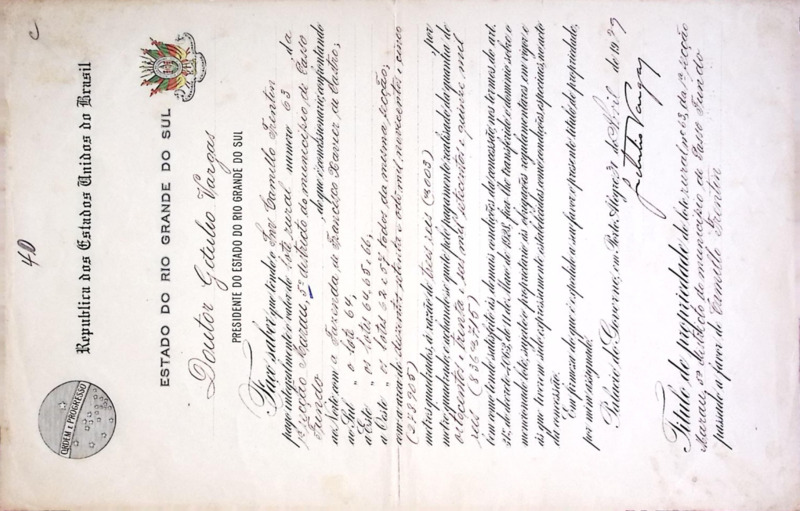 40
C
ORDEM E PROGRESSO
Republica dos Estados Unidos do Brasil
ESTADO DO RIO GRANDE DO SUL
Doutor Getulio Vargas
PRESIDENTE DO ESTADO DO RIO GRANDE DO SUL
Faço saber que tendo o Snr. Camillo Trentin
pago integralmente o valor do lote rural numero 63 da
1ª secção Marau, 5º districto do municipio de Passo
Fundo de que é concessionario, confrontando
ao Norte com a Fazenda de Francisco Xavier de Castro;
ao Sul " o lote 64,
a Este " os lotes 64, 65, 66,
a Oeste " os lotes 62 e 57 todos da mesma secção,
com a area de duzentos setenta e oito mil novecentos e cinco
(278905)
metros quadrados, á razão de tres reis (\$003) por
metro quadrado, e achando-se quite pelo pagamento realisado da quantia de
oitocentos e trinta e seis mil setecentos e quinze mil
reis (836\$715)
e tendo satisfeito as demais condições da concessão, nos termos do art.
da Lei de 1908, foi-lhe transferido o dominio sobre o
mencionado lote, sujeito o proprietario ás obrigações regulamentares em vigor e
ás que tiverem sido expressamente estabelecidas, como condições especiaes, no acto
da concessão.
Em firmeza do que é expedido a seu favor o presente titulo de propriedade,
por mim assignado.
Palacio do Governo, em Porto Alegre, de Abril de 19
Getulio Vargas
Titulo de propriedade do lote rural nº 63, da 1ª secção
Marau, 5º districto do municipio de Passo Fundo
passado a favor de Camillo Trentin